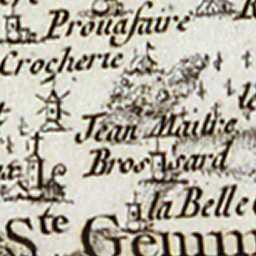 Prouasaire
Crocherie
Jean Maitre
Brossard
la Belle
Ste Gemm